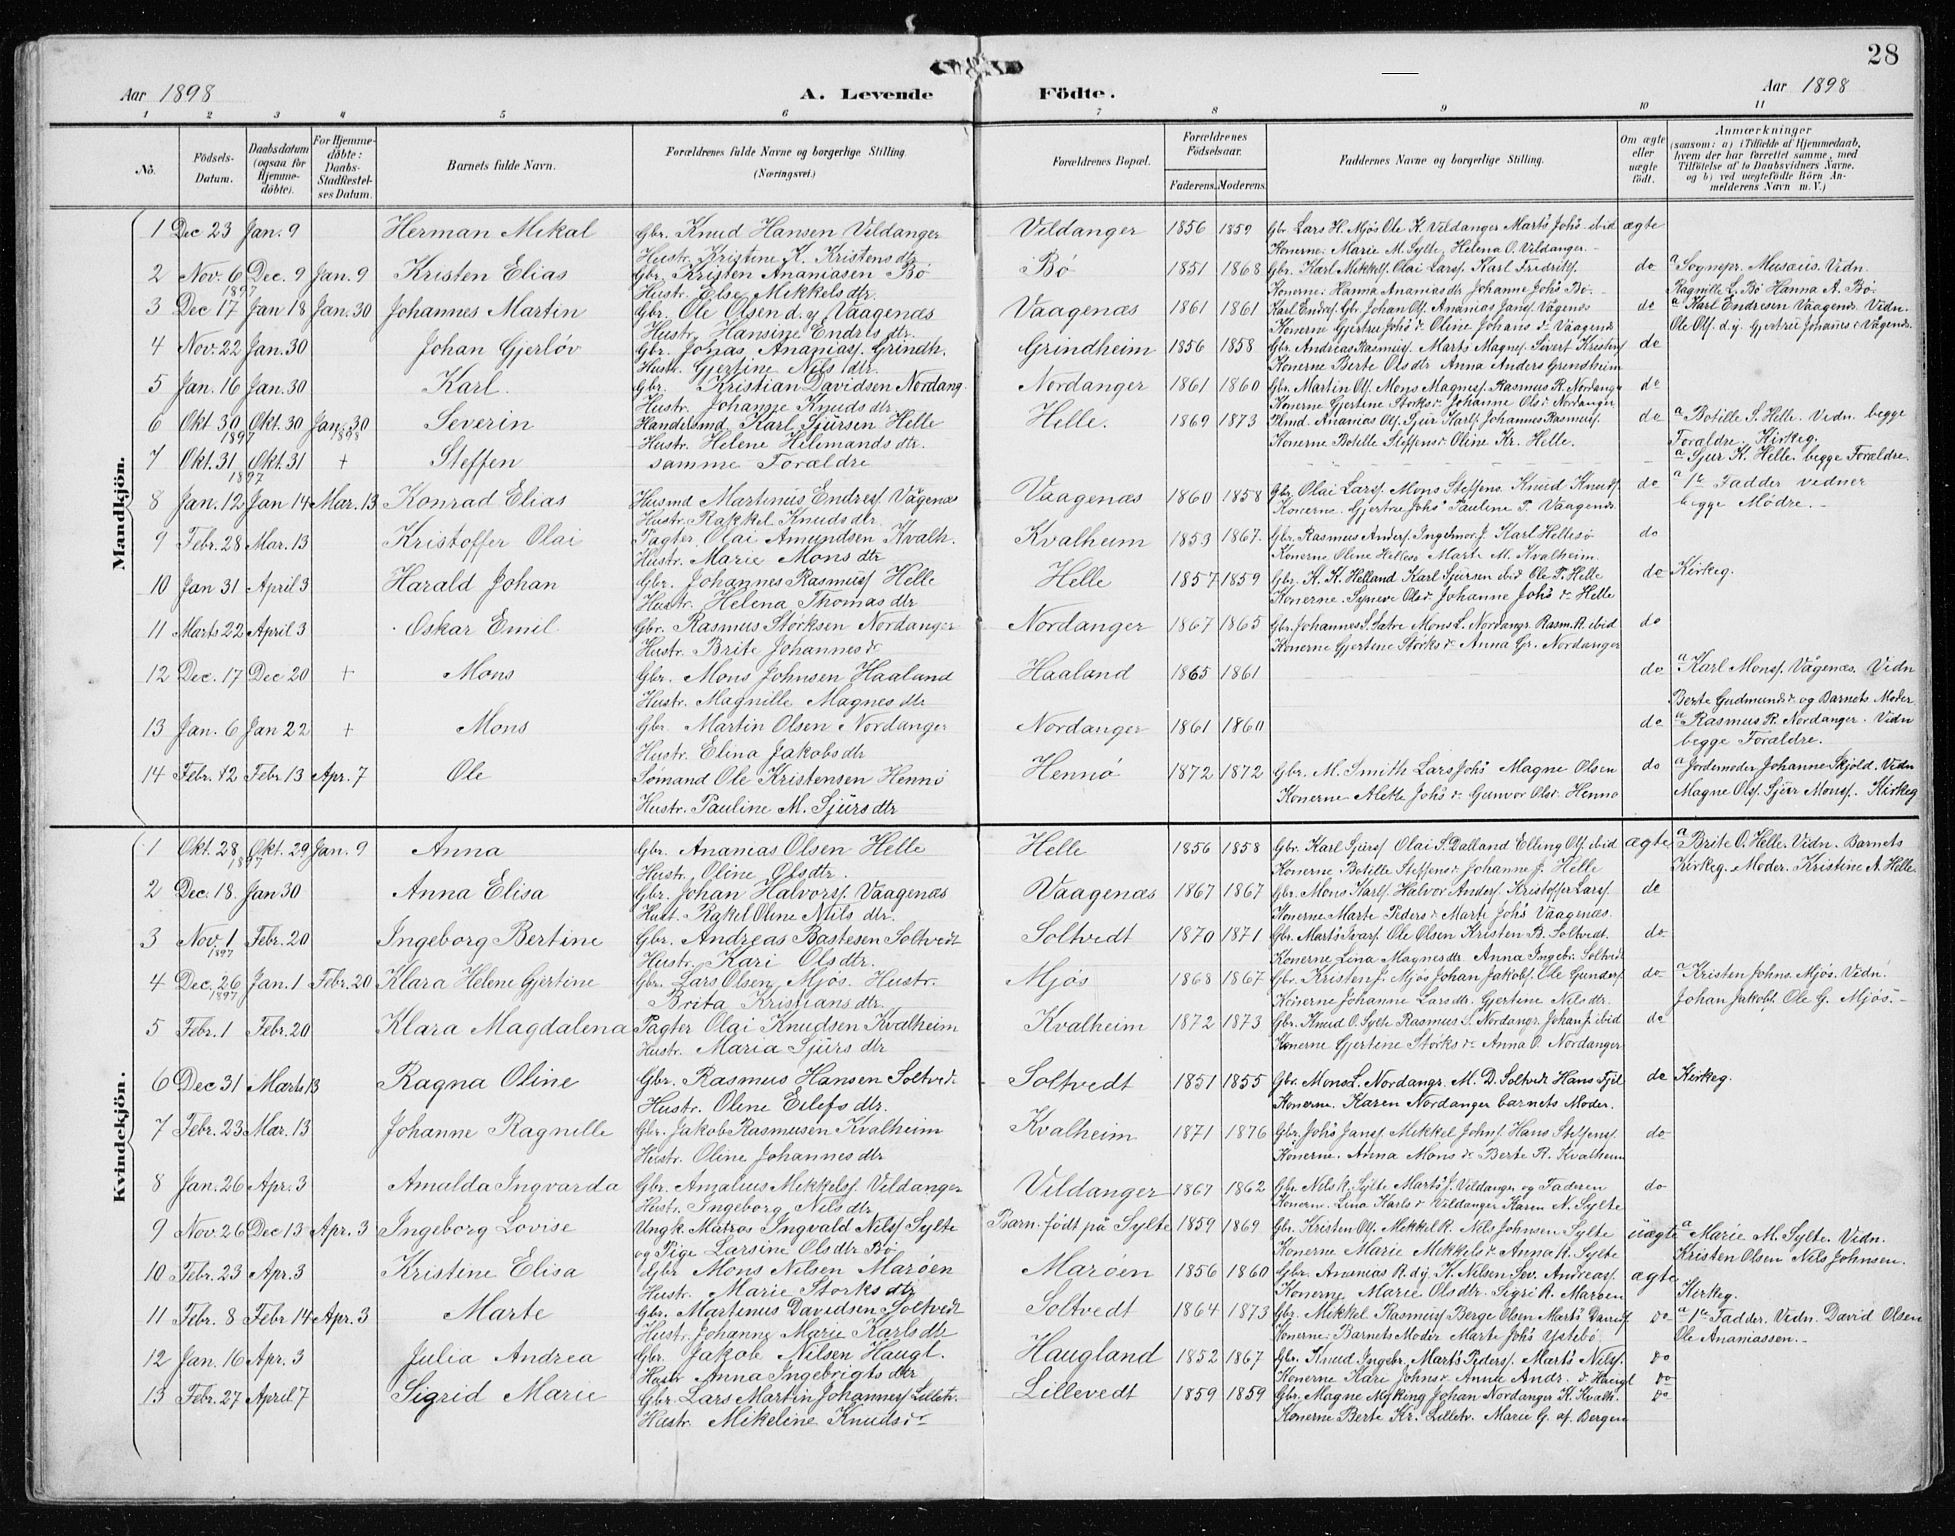 28
Aar 1898
A. Levende Födte.
Aar 1898
1 2 3 4 5 6 7 8 9 10 11
No.
Födsels-Datum.
Daabsdatum (ogsaa for Hjemme-döbte).
For Hjemme-döbte: Daabs-Stadfæstel-ses Datum.
Barnets fulde Navn.
Forældrenes fulde Navne og borgerlige Stilling.
(Næringsvei.)
Forældrenes Bopæl.
Forældrenes Födselsaar.
Faderens. Moderens.
Faddernes Navne og borgerlige Stilling.
Om ægte eller uægte födt.
Anmærkninger
(saasom: a) i Tilfælde af Hjemmedaab, hvem der har forrettet samme, med Tilföielse af to Daabsvidners Navne, og b) ved uægtefödte Börn An-melderens Navn m. V.)
Mandkjön.
1 Dec 23 Jan. 9 Herman Mikal Gbr. Knud Hansen Vildanger Vildanger 1856 1859 Gbr Lars H. Mjøs Ole K. Vildanger Marts Johs ibid ægte
Hustr. Kristine K. Kristens dtr Konerne: Marie M. Sylte, Helena O. Vildanger.
2 Nov. 6 Dec. 9 Jan. 9 Kristen Elias Gbr. Kristen Ananiasen Bø Bø 1851 1868 Gbr. Karl Mikkels. Olai Lars. Karl Fridriks. do a Sognepr. Musæus. Vidn.
1897 Hustr. Else Mikkels dtr. Konerne: Hanna Ananias dtr Johanne Johs Bø. Ragnille L. Bø Hanna A. Bø.
3 Dec 17 Jan 18 Jan. 30 Johannes Martin Gbr. Ole Olsen d. y Vaagenæs Vaagenæs 1861 1861 Karl Endres. Gbr. Johan Ols. Ananias Jans. Vågenæs do a Karl Endresen Vaagenæs. Vidn.
Hustr. Hansine Endres dtr. Konerne Gjertru Johs dr Oline Johans dr Vaagenæs Ole Ols. d.y. Gjertru Johanes dr Vågenæs.
4 Nov. 22 Jan. 30 Johan Gjerløv Gbr. Jonas Ananiass. Grindh. Grindheim 1856 1858 Gbr. Andrias Rasmuss. Marts Magnes. Sivert Kristens. do
Hustr. Gjertine Nils dtr. Konerne Berte Ols dtr Anna Anders Grendheim
5 Jan. 16 Jan. 30 Karl. Gbr. Kristian Davidsen Nordang. Nordanger 1861 1860 Gbr. Martin Ols. Mons Magness. Rasmus R. Nordange do
Hustr. Johanne Knuds dtr Konerne Gjertine Storks dr Johanne Ols dr Nordanger
6 Okt. 30 Okt. 30 Jan. 30 Severin Handelsmd. Karl Sjursen Helle Helle. 1869 1873 Hmd. Ananias Ols. Sjur Karls. Johannes Rasmuss. do a Botille S. Helle. Vidn. begge
1897 1898 Hustr. Helene Helimands dtr. Konerne Botille Steffens dr Oline Kr. Helle. Forældre. Kirkeg.
7 Okt. 31 Okt. 31 + Steffen samme Forældre a Sjur K. Helle. begge Forældre.
1897
8 Jan. 12 Jan 14 Mar. 13 Konrad Elias Husmd Martinus Endres. Vågenæs Vaagenæs 1860 1858 Gbr. Olai Lars. Mons Steffens. Knud Knuds. do a 1e Fadder vedner
Hustr. Rakkel Knuds dtr. Konerne. Gjertru Johs Pauline T. Vaagenæs begge Mødre.
9 Febr. 28 Mar. 13 Kristoffer Olai Pagter Olai Amundsen Kvalh. Kvalheim 1853 1867. Gbr. Rasmus Anders. Ingelmor J. Karl Hellesø do
Hustr. Marie Mons dtr Konerne Olene Hellesø Marte M. Kvalheim.
10 Jan 31 April 3 Harald Johan Gbr. Johannes Rasmuss. Helle Helle 1857 1859 Gbr. K. K. Helland Karl Sjursen ibid Ole T. Helle do Kirkeg.
Hustr. Helena Thomas dtr Konerne. Syneve Ols dr Johanne Johs dr Helle
11 Marts 22 April 3 Oskar Emil Gbr. Rasmus Størksen Nordanger Nordanger 1867 1865 Gbr. Johannes S. Sætre Mons L. Nordangr. Rasm. R. ibid do
Hustr. Brite Johannes dr Konerne Gjertine Storks dr Anna Gr. Nordanger
12 Dec. 17 Dec 20 + Mons Gbr. Mons Johnsen Haaland Haaland 1865 1861 do a Karl Monss. Vågenæs. Vidn
Hustr. Magnille Magnes dtr Berte Gudmunds dr og Barnets Moder
13 Jan. 6 Jan 22 + Mons Gbr. Martin Olsen Nordanger Nordanger 1861 1860 do a Rasmus R. Nordanger. Vidn
Hustr. Elina Jakobs dtr begge Forældre.
14 Febr. 12 Febr. 13 Apr. 7 Ole Sømand Ole Kristensen Hennø Hennø 1872 1872 Gbr. M. Smith Lars Johs Magne Olsen do a Jordemoder Johanne Skjold. Vidn
Hustr. Pauline M. Sjurs dtr Konerne Alette Johs dr Gunvor Ols dr Hennø Magne Ols. Sjur Monss. Kirkeg
Kvindekjön.
1 Okt. 28 Okt. 29 Jan. 9 Anna Gbr. Ananias Olsen Helle Helle 1856 1858 Gbr. Karl Sjurs. Olai S. Dalland Elling Ols. ibid ægte a Brite O. Helle. Vidn. Barnets
1897 Hustr. Oline Ols dtr. Konerne Botille Steffens dr Johanne J. Helle Kirkeg. Moder. Kristine A. Helle.
2 Dec. 18. Jan 30 Anna Elisa Gbr. Johan Halvorss. Vaagenæs Vaagenæs 1867 1867 Gbr. Mons Karls. Halvor Anders. Kristoffer Lars. do
Hust. Rakel Oline Nils dtr. Konerne Marte Peders dr Marte Johs Vaagenæs.
3 Nov. 1 Febr. 20 Ingeborg Bertine Gbr. Andreas Bastesen Soltvedt Soltvedt 1870 1871 Gbr. Marts Ivars. Ole Olsen Kristen B. Soltvedt. do
1897 Hustr. Kari Ols dtr. Konerne Lina Magnes dtr. Anna Ingebr. Soltvedt
4 Dec. 26 Jan. 1 Febr. 20 Klara Helene Gjertine Gbr. Lars Olsen Mjøs. Hustr. Mjøs 1868 1867 Gbr. Kristen J. Mjøs Johan Jakobs. Ole Gunders. do a Kristen Johns. Mjøs. Vidn.
1897 Brita Kristians dtr. Konerne Johanne Lars dtr. Gjertine Nils dtr. Johan Jakobs. Ole G. Mjøs.
5 Febr. 1 Febr. 20 Klara Magdalena Pagter Olai Knudsen Kvalheim Kvalheim 1872 1873 Gbr. Knud O. Sylte Rasmus S. Nordangr. Johan J. ibid do
Hustr. Maria Sjurs dtr Konerne Gjertine Størks dr Anna O. Nordanger
6 Dec 31 Marts 13 Ragna Oline Gbr. Rasmus Hansen Soltvedt Soltvedt 1851 1855 Gbr. Mons L. Nordangr. M. D. Soltvedt Hans Fjel do Kirkeg.
Hustr. Oline Eilefs dtr. Konerne. Karen Nordanger barnets Moder.
7 Febr. 23 Mar. 13 Johanne Ragnille Gbr. Jakob Rasmusen Kvalheim Kvalheim 1871 1876 Gbr. Johs Jans. Mikkel Johns. Hans Steffens. do
Hustr. Oline Johannes dtr Konerne. Anna Mons dr Berte R. Kvalheim
8 Jan. 26 Apr. 3 Amulda Ingvarda Gbr. Amalius Mikkels. Vildanger Vildanger 1867 1862 Gbr. Nils K. Sylte Marts J. Vildanger og Faderen do
Hustr. Ingeborg Nils dtr Konerne. Lina Karls dr Vildanger Karen N. Sylte
9 Nov. 26 Dec 13 Apr. 3 Ingeborg Lovise Ungk. Matros Ingvald Nilss. Sylte Barn. født på Sylte 1859 1869 Gbr. Kristen Ols. Mikkel R. Nils Johnsen Sylte uægte a Marie M. Sylte. Vidn.
og Pige Larsine Ols dtr Bø Konerne Marie Mikkels dr Anna K. Sylte Kristen Olsen Nils Johnsen.
10 Febr. 23 Apr. 3 Kristine Elisa Gbr Mons Nilsen Marøen Marøen 1856 1860 Gbr. Ananias R. d.y. K. Nilsen Sev. Andreas. ægte
Hustr. Marie Storks dtr Konerne Marie Ols dtr. Sigri R. Marøen Kirkeg.
11 Febr. 8 Febr 14 Apr. 3 Marte Gbr. Martenus Davidsen Soltvedt Soltvedt 1864 1873 Gbr. Mikkel Rasmuss. Berge Olsen Marts Davids. do a 1e Fadder. Vidn. David Olsen
Hustr. Johanne Marie Karls dtr Konerne. Barnets Moder Marte Johs Ystebø Ole Ananiassen.
12 Jan. 16 Apr. 3 Julia Andrea Gbr. Jakob Nilsen Haugl. Haugland 1852 1867 Gbr. Knud Ingebr. Marts Peders. Marts Nils. do
Hustr Anna Ingebrigts dtr Konerne Kari Johns dr Anne Andr. dr Haugl do
13 Febr. 27 April 7 Sigrid Marie Gbr. Lars Martin Johanness. Lilletv. Lillevedt 1859 1859 Gbr. Magne Myking Johan Nordanger K. Kvalh. do
Hustr. Mikeline Knuds dr Konerne Berte Kr. Lilletv. Marie G. af Bergen